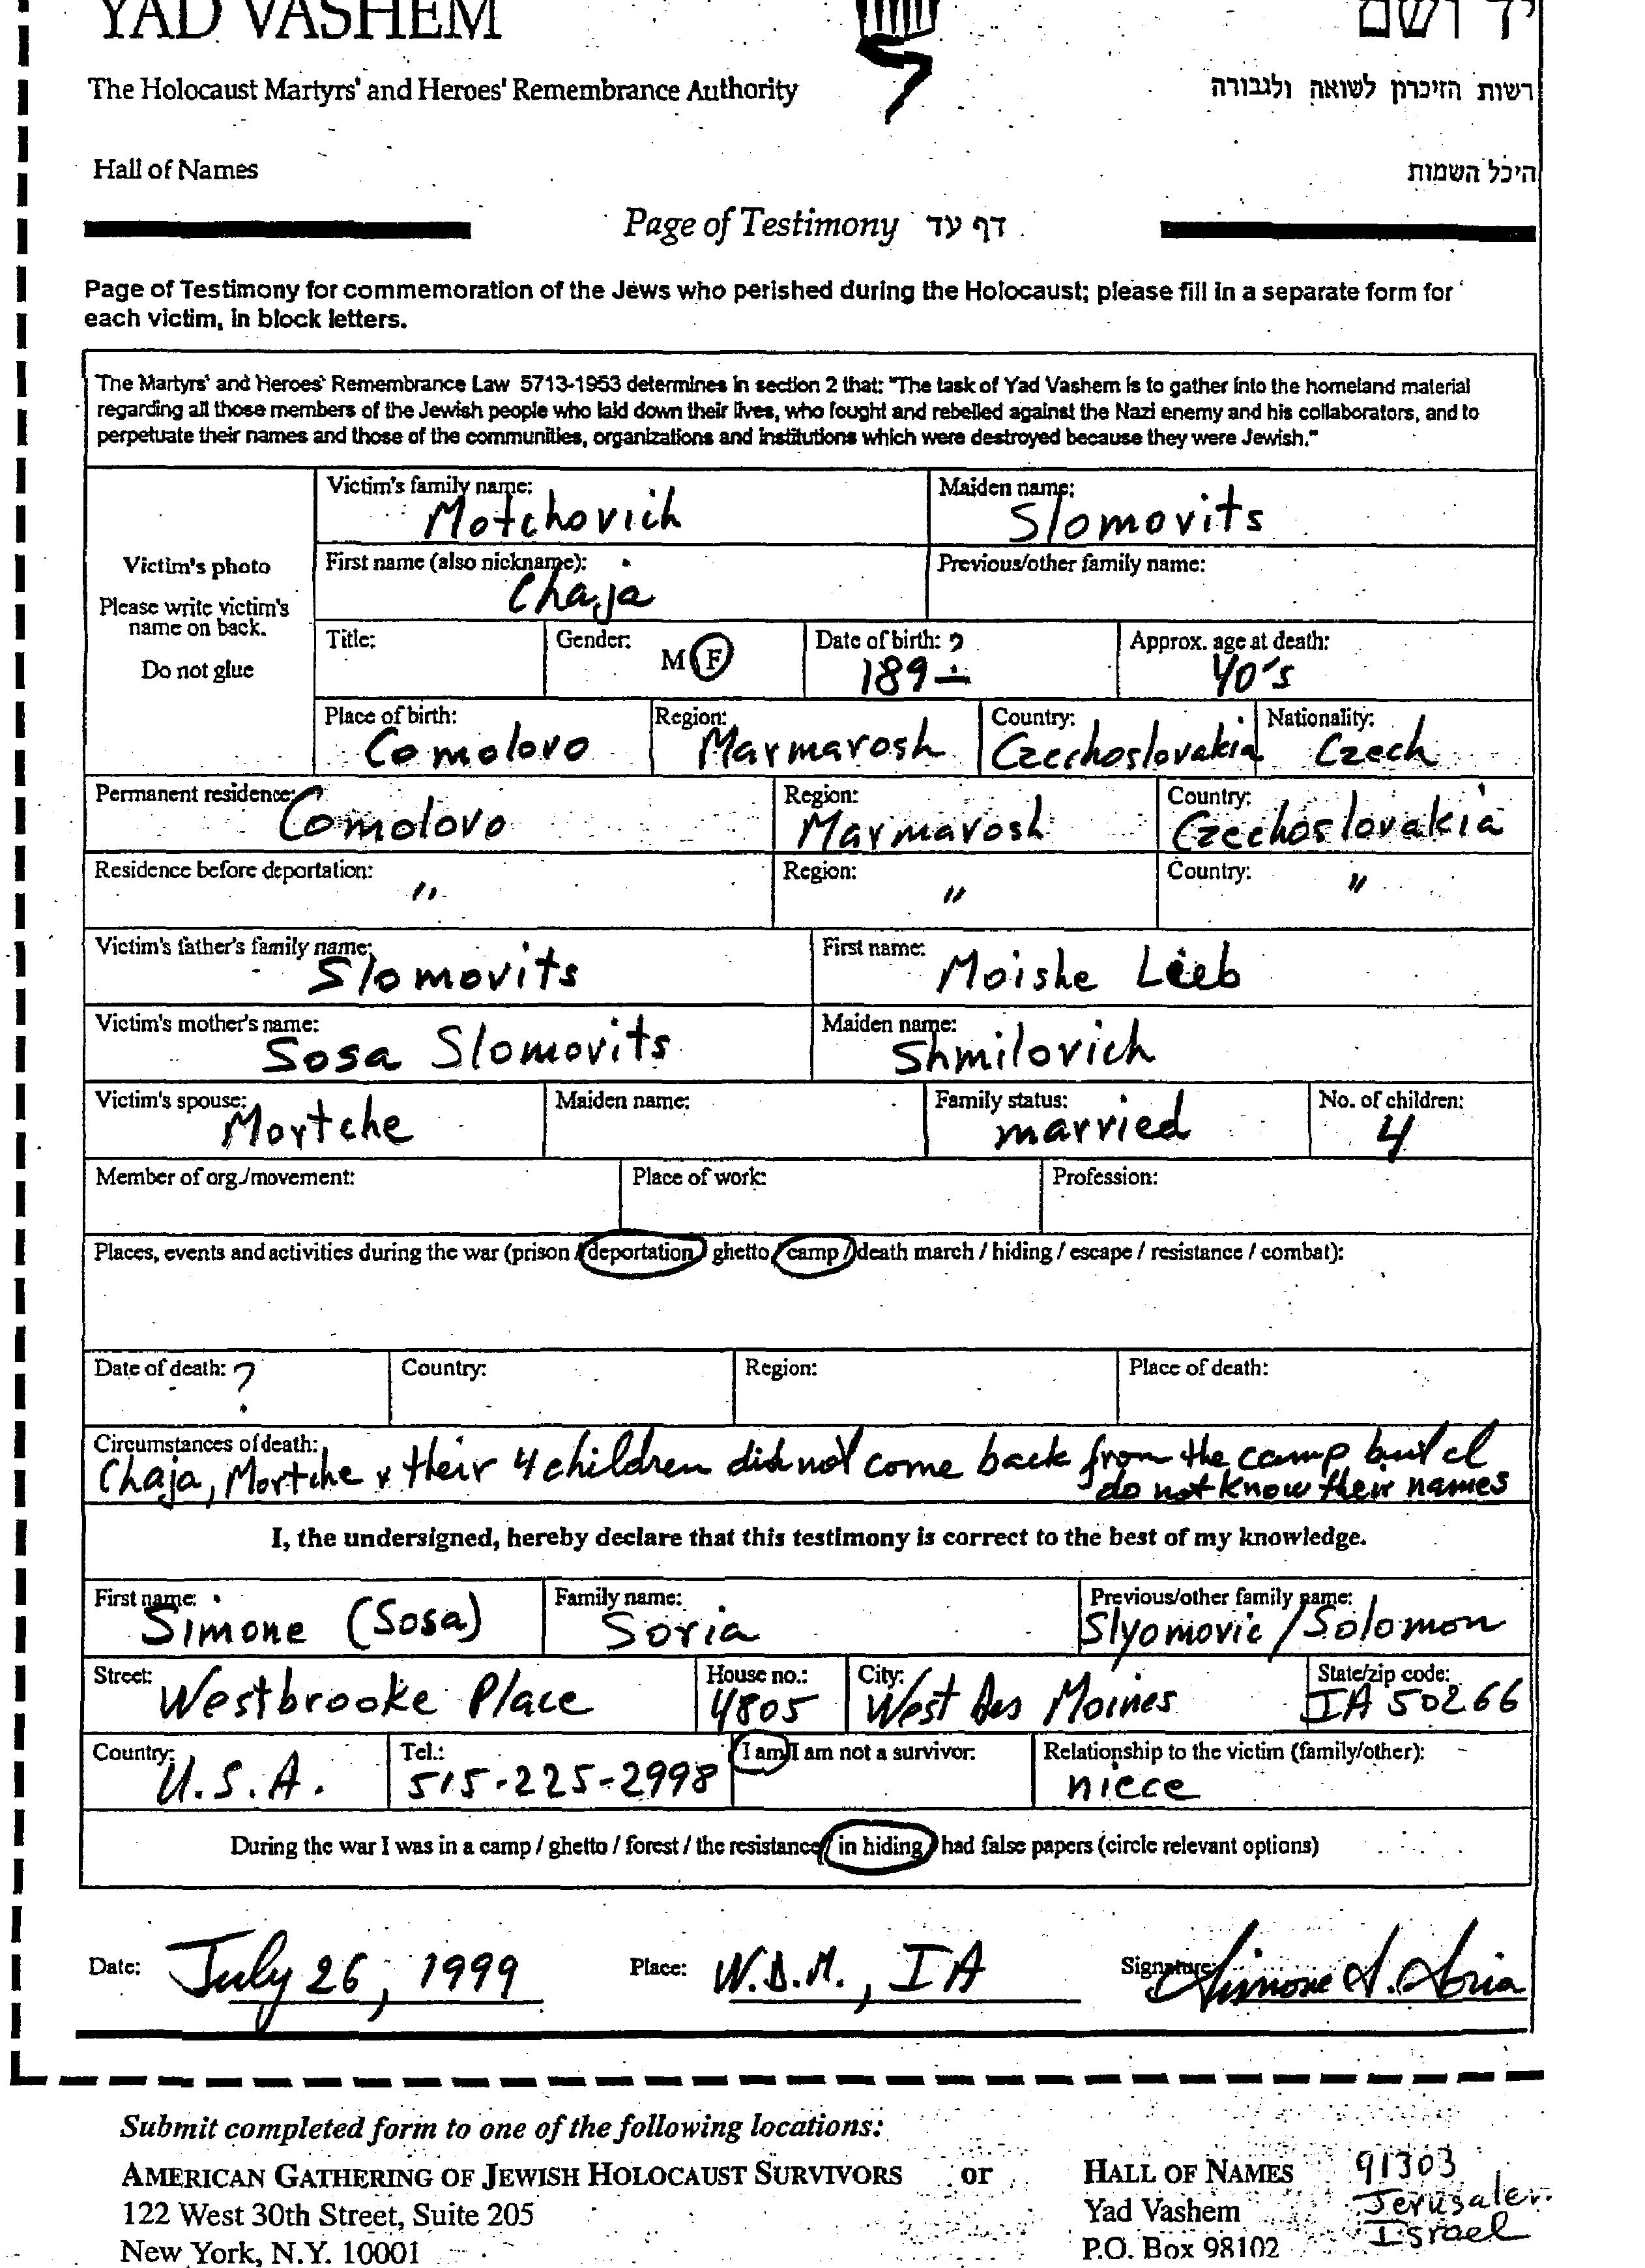 YAD VASHEM יד ושם
The Holocaust Martyrs' and Heroes' Remembrance Authority רשות הזיכרון לשואה ולגבורה
Hall of Names היכל השמות
Page of Testimony דף עד
Page of Testimony for commemoration of the Jews who perished during the Holocaust; please fill in a separate form for
each victim, in block letters.
The Martyrs' and Heroes' Remembrance Law 5713-1953 determines in section 2 that: "The task of Yad Vashem is to gather into the homeland material
regarding all those members of the Jewish people who laid down their lives, who fought and rebelled against the Nazi enemy and his collaborators, and to
perpetuate their names and those of the communities, organizations and institutions which were destroyed because they were Jewish."
Victim's photo
Please write victim's
name on back.
Do not glue
Victim's family name: Maiden name:
Motchovich Slomovits
First name (also nickname): Previous/other family name:
Chaja
Title: Gender: M F Date of birth: ? Approx. age at death:
189- 40's
Place of birth: Region: Country: Nationality:
Comolovo Marmarosh Czechoslovakia Czech
Permanent residence: Region: Country:
Comolovo Marmarosh Czechoslovakia
Residence before deportation: " Region: " Country: "
Victim's father's family name: First name:
Slomovits Moishe Lieb
Victim's mother's name: Maiden name:
Sosa Slomovits Shmilovich
Victim's spouse: Maiden name: Family status: No. of children:
Mortche married 4
Member of org./movement: Place of work: Profession:
Places, events and activities during the war (prison / deportation / ghetto / camp / death march / hiding / escape / resistance / combat):
Date of death: ? Country: Region: Place of death:
Circumstances of death:
Chaja, Mortche & their 4 children did not come back from the camp but I
do not know their names
I, the undersigned, hereby declare that this testimony is correct to the best of my knowledge.
First name: Family name: Previous/other family name:
Simone (Sosa) Soria Slyomovic/Solomon
Street: House no.: City: State/zip code:
Westbrooke Place 4805 West Des Moines IA 50266
Country: Tel.: I am/I am not a survivor: Relationship to the victim (family/other):
U.S.A. 515-225-2998 niece
During the war I was in a camp / ghetto / forest / the resistance / in hiding / had false papers (circle relevant options)
Date: July 26, 1999 Place: W.D.M., IA Signature: Simone S. Soria
Submit completed form to one of the following locations:
AMERICAN GATHERING OF JEWISH HOLOCAUST SURVIVORS or HALL OF NAMES 91303
122 West 30th Street, Suite 205 Yad Vashem Jerusalem
New York, N.Y. 10001 P.O. Box 98102 Israel